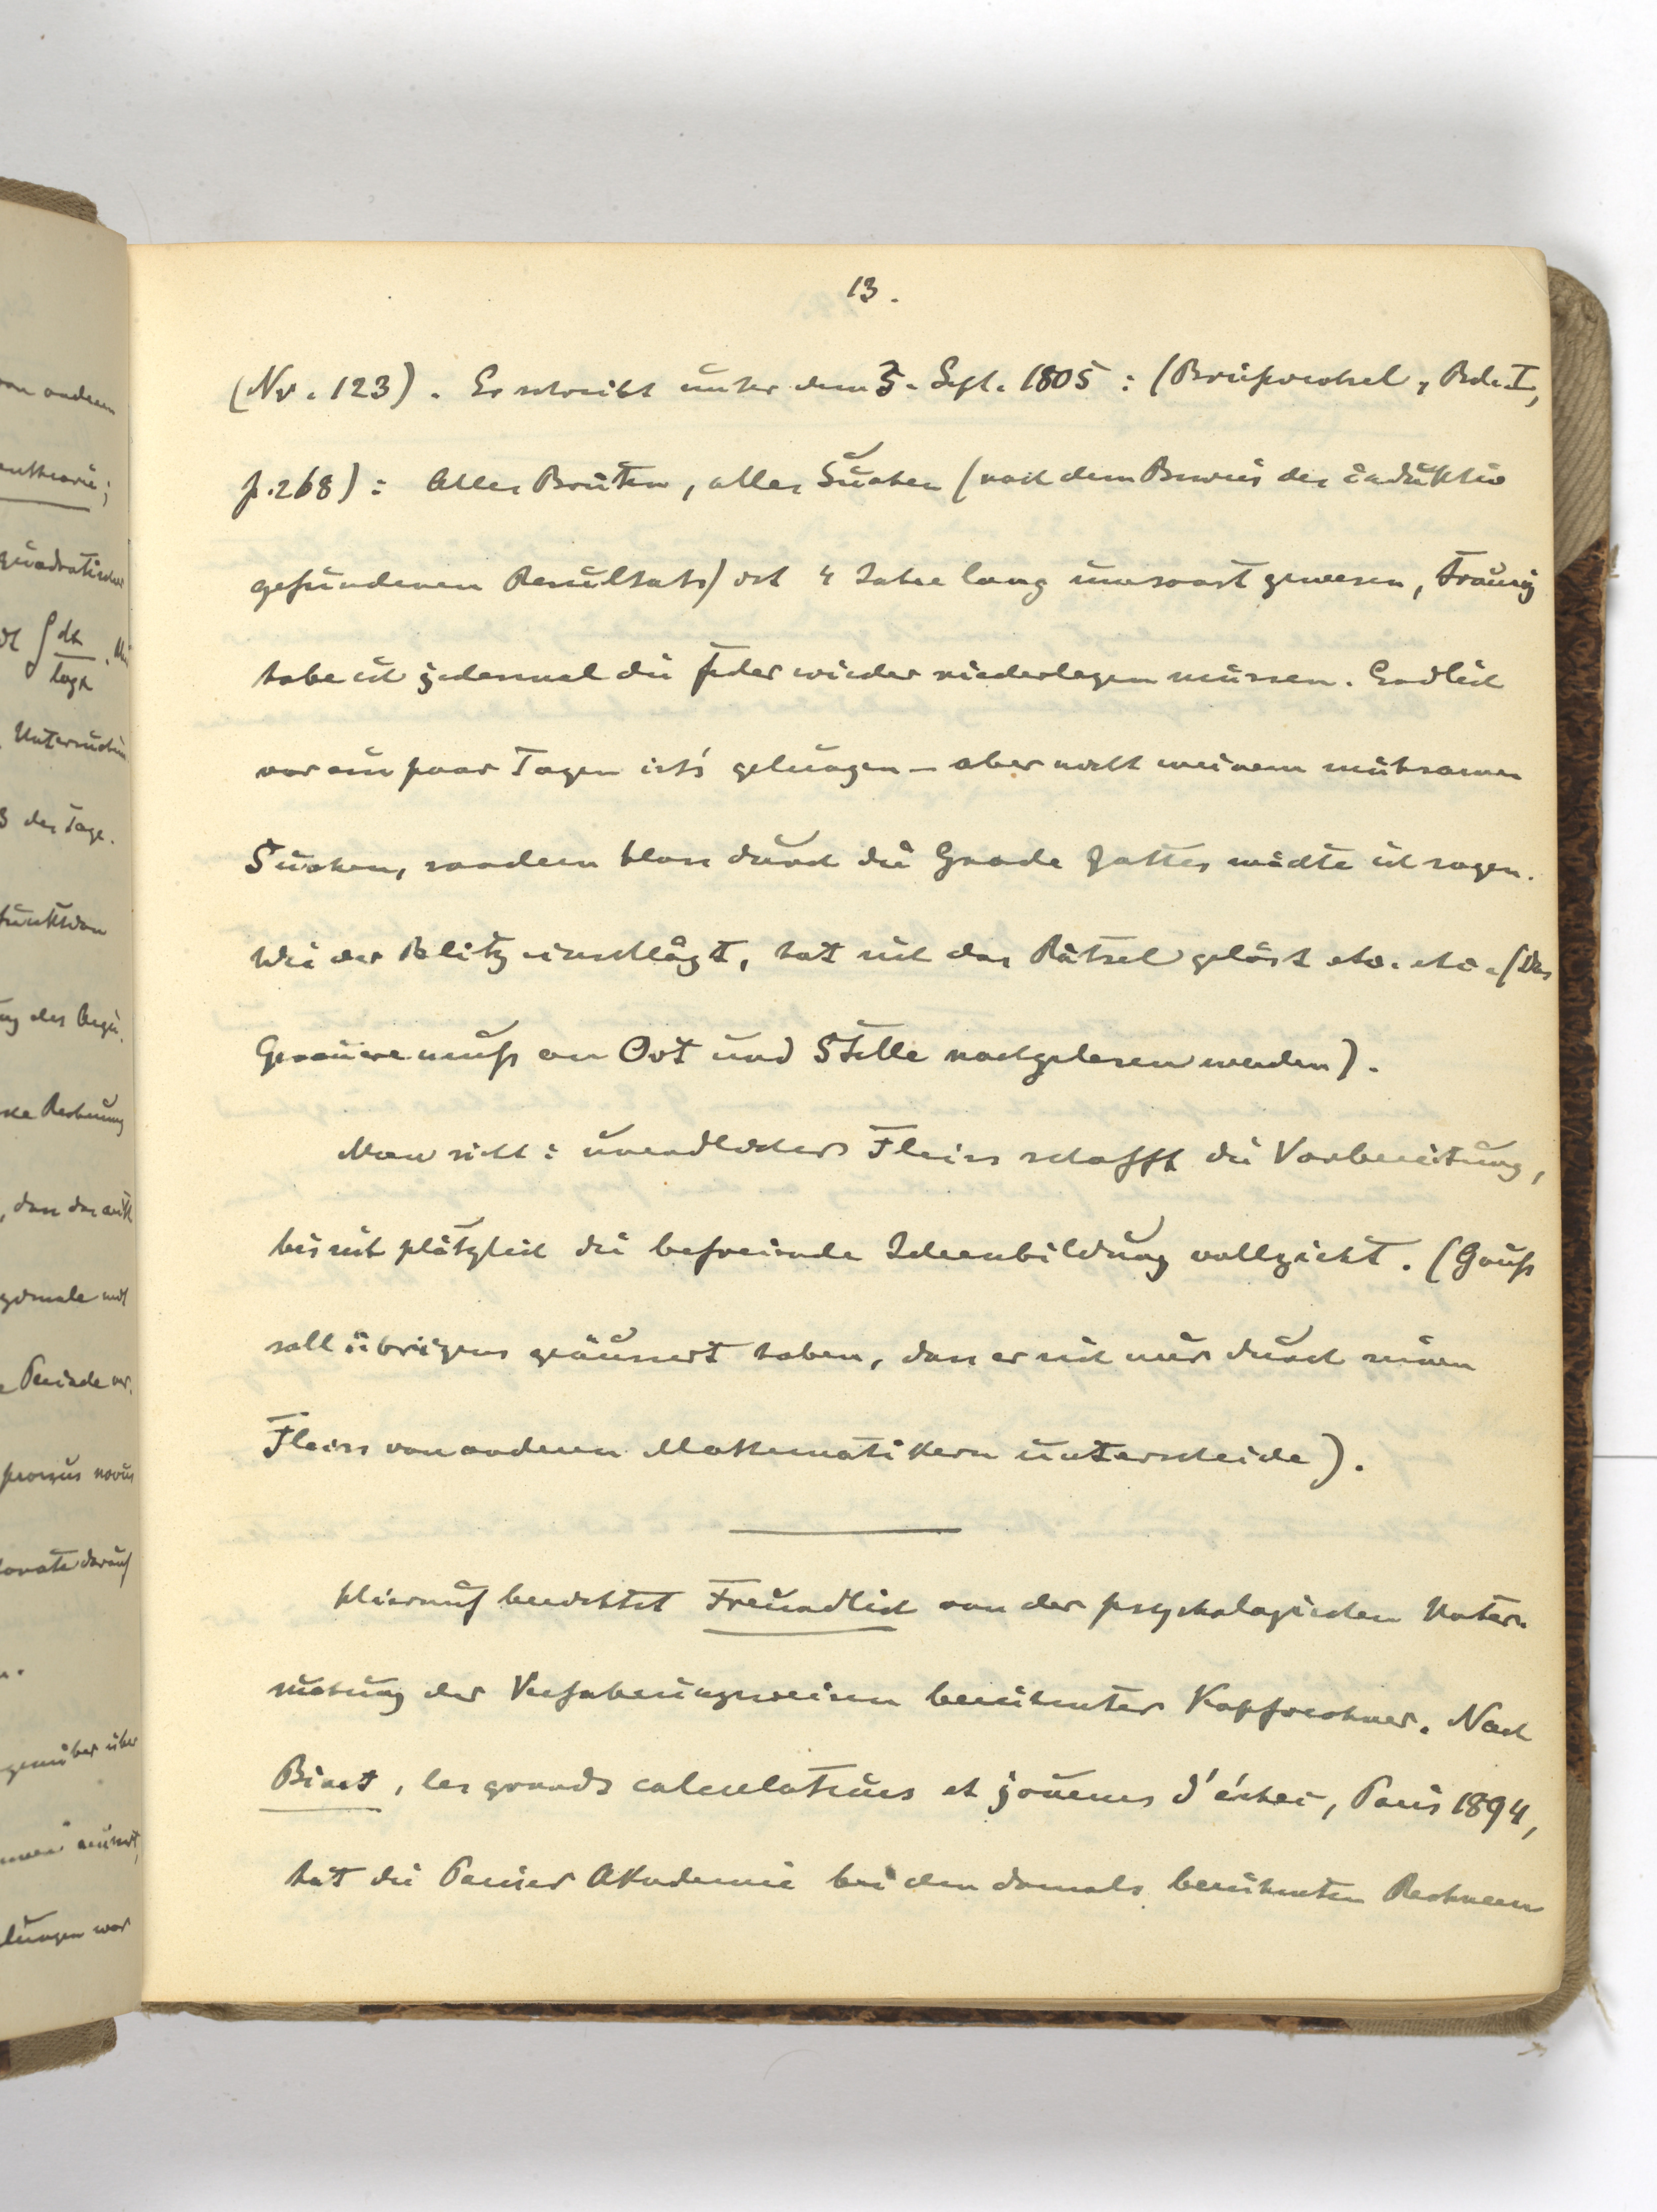 13.
(Nr. 123). Er schreibt unter dem 3. Sept. 1805 : (Briefwechsel, Bd. I,
p. 268) : Alles Brüten, alles Suchen (nach dem Beweis des induktiv
gefundenen Resultats) ist 4 Jahre lang umsonst gewesen, traurig
habe ich jedesmal die Feder wieder niederlegen müssen. Endlich
vor ein paar Tagen ist's gelungen – aber nicht meinem mühsamen
Suchen, sondern bloss durch die Gnade Gottes möchte ich sagen.
Wie der Blitz einschlägt, hat sich das Rätsel gelöst etc. etc. (Das
Genauere muß an Ort und Stelle nachgelesen werden).
Man sieht : unendlicher Fleiss schafft die Vorbereitung,
bis sich plötzlich die befreiende Ideenbildung vollzieht. (Gauß
soll übrigens geäussert haben, dass er sich nur durch seinen
Fleiss von anderen Mathematikern unterscheide).
Hierauf berichtet Freundlich von der psychologischen Unter-
suchung der Verfahrungsweisen berühmter Kopfrechner. Nach
Binet, les grands calculateurs et joueurs d'échec, Paris 1894,
hat die Pariser Akademie bei den damals berühmten Rechnern
von anderen
quadratischen
∫ dx
log x
Untersuchun
3 der Tage.
funktion
ung des Argu.
Rechnung
, dass das arith
Periode
novus
Monate darauf
gegenüber über
äussert,
lungen war